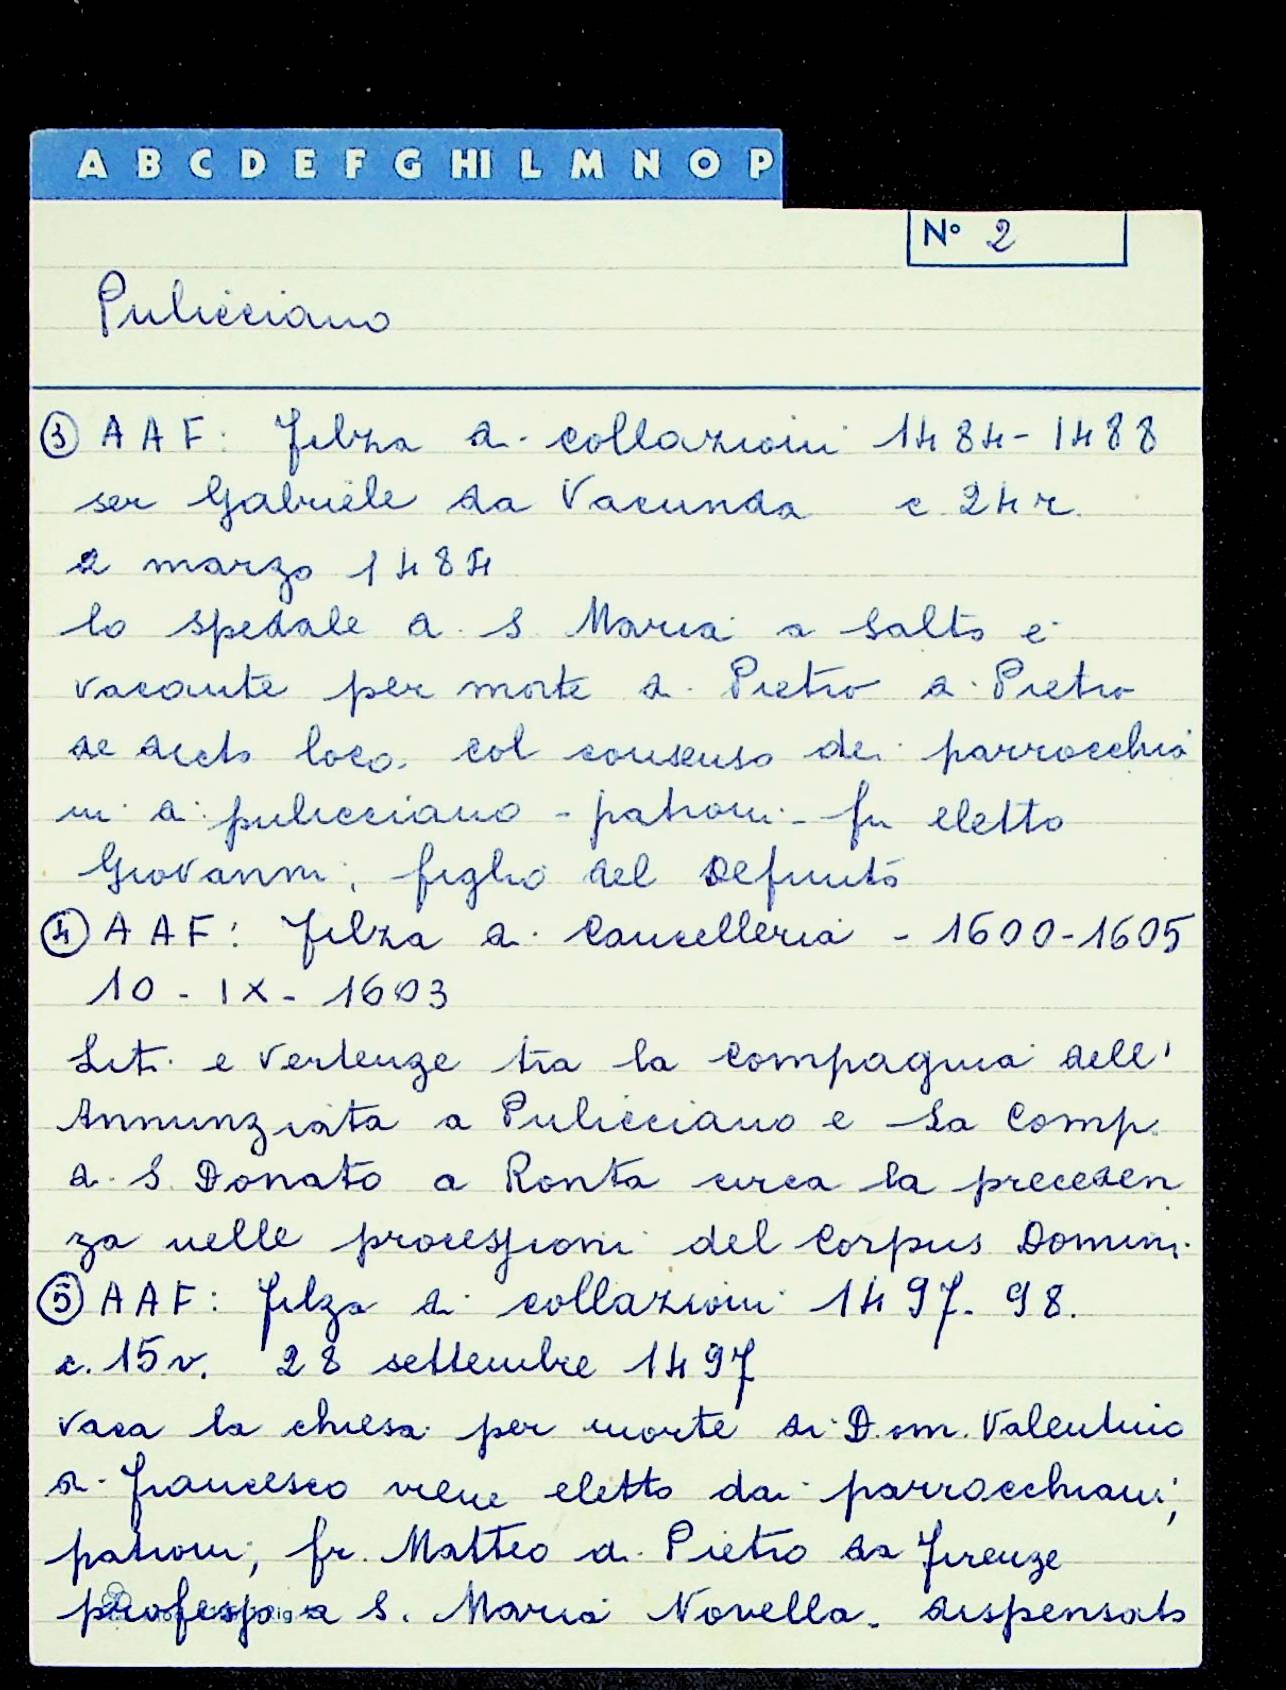 A B C D E F G HI L M N O P
N° 2
Pulicciano
③ AAF: Filza di collazioni 1484-1488
ser Gabriele da Vacunda c 24 r.
2 marzo 1484
lo spedale di S. Maria a Salto è
vacante per morte di Pietro di Pietro
de dicto loco. col consenso dei parrocchia
ni di pulicciano - patroni - fu eletto
Giovanni, figlio del defunto
④ AAF: Filza di Cancelleria - 1600-1605
10 - IX - 1603
Liti e vertenze tra la compagnia dell'
Annunziata a Pulicciano e la Comp.
di S. Donato a Ronta circa la preceden
za nelle processioni del Corpus Domini.
⑤ AAF: Filza di collazioni 1497-98.
c. 15v. 28 settembre 1497
vaca la chiesa per morte di Dom. Valentino
di Francesco viene eletto dai parrocchiani,
patroni, fr. Matteo di Pietro da Firenze
professo a S. Maria Novella. dispensato